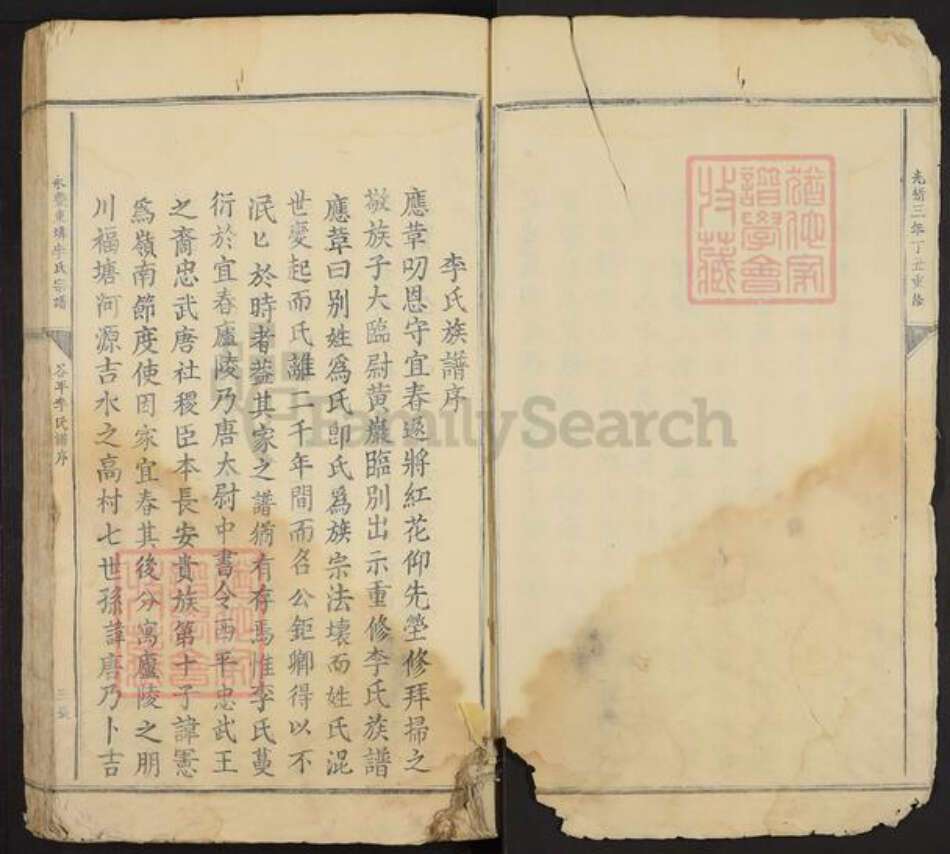 光緒三年丁丑重修
猶他家
譜學會
收藏
李氏族譜序
應葦叨恩守宜春遂將紅花仰先塋修拜掃之
敬族子大臨尉黃巖臨別出示重修李氏族譜
應葦曰別姓為氏卽氏為族宗法壞而姓氏混
世變起而氏離二千年間而名公鉅卿得以不
泯匕於時者葢其家之譜猶有存焉惟李氏蔓
衍於宜春廬陵乃唐太尉中書令西平忠武王
之裔忠武唐社稷臣本長安貴族第十子諱憲
為嶺南節度使因家宜春其後分寓廬陵之朋
川福塘河源吉水之高村七世孫諱唐乃卜吉
永豐東塘李氏宗譜
谷平李氏譜序
猶他家
譜學會
收藏
FamilySearch